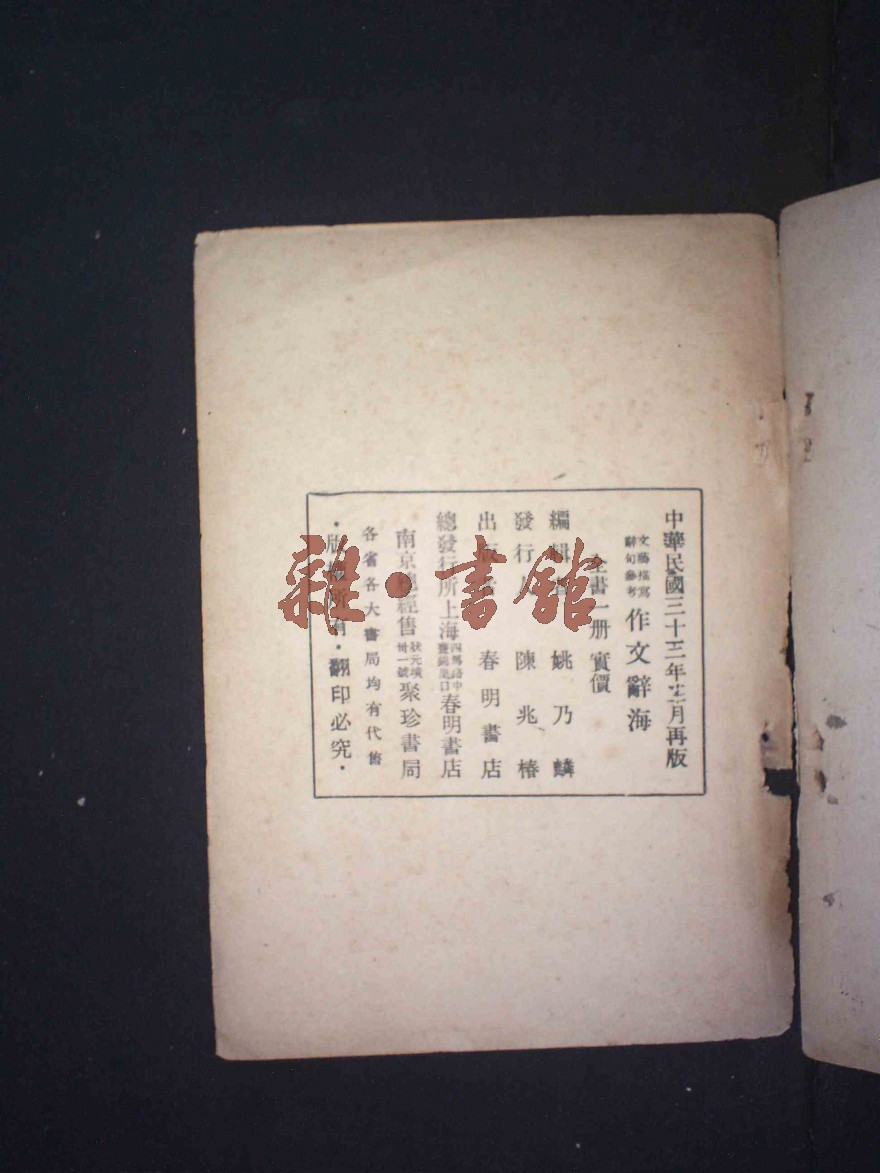 中華民國三十三年十二月再版
文藝描寫
辭句參考
作文辭海
全書一册 實價
編輯者 姚乃麟
發行人 陳兆椿
出版者 春明書店
總發行所上海四馬路中春明書店
南京總經售狀元境卅一號聚珍書局
各省各大書局均有代售
·版權所有·翻印必究·
雜·書館